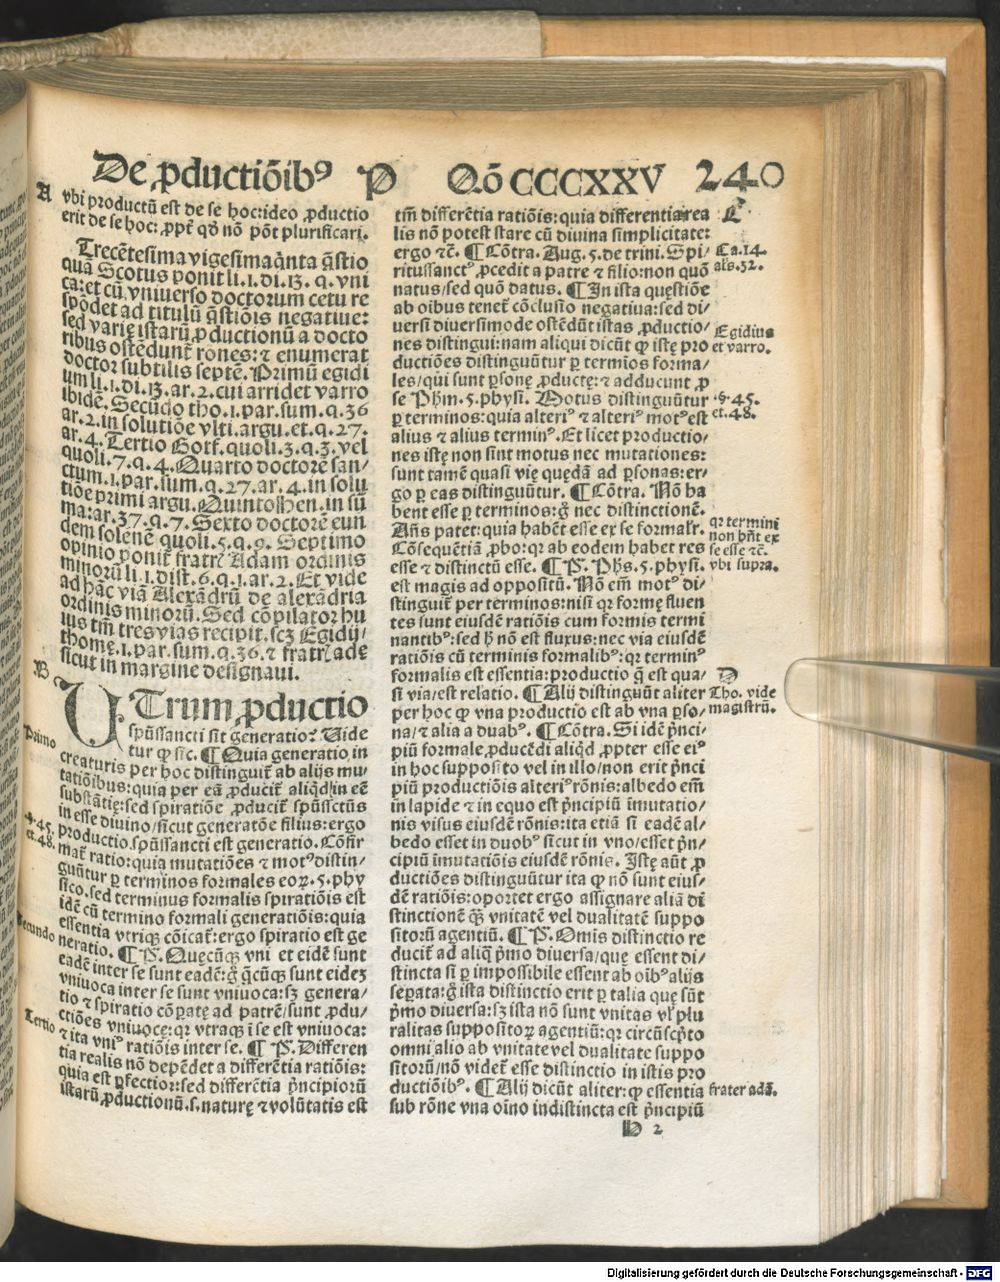 De ꝓductiõib⁹ P Qõ CCCXXV 240
A
vbi productũ est de se hoc:ideo ꝓductio
erit de se hoc: ꝓpt̃ qđ nõ põt plurificari.
Trecẽtesima vigesima q̃nta q̃stio
quã Scotus ponit li.1.di.13.q.vni
ca:et cũ vniuerso doctorum cetu re
spõdet ad titulũ q̃stiõis negatiue:
sed varię istarũ ꝓductionũ a docto
ribus ostẽdunt̃ rones:⁊ enumerat
doctor subtilis septẽ. Primũ egidi
um li.1.di.13.ar.2.cui arridet varro
ibidẽ. Secũdo tho.1.par.sum.q.36
ar.2.in solutiõe vlti.argu.et.q.27.
ar.4. Tertio Gotf.quoli.3.q.3.vel
quoli.7.q.4. Quarto doctorẽ san/
ctum.1.par.sum.q.27.ar.4.in solu
tiõe primi argu. Quinto Hen.in sũ
ma:ar.37.q.7. Sexto doctorẽ eun
dem solẽne quoli.5.q.9. Septimo
opinio ponit̃ fratr̃ Adam ordinis
minorũ li.1.dist.6.q.1.ar.2. Et vide
ad hãc viã Alexãdrũ de alexãdria
ordinis minorũ. Sed cõpilator hu
ius tm̃ tres vias recipit.scʒ Egidij/
thomę.1.par.sum.q.36.⁊ fratr̃ adę
sicut in margine designaui.
B
UTrum ꝓductio
spũssancti sit generatio? Uide
Primo
tur ꝙ sic. ¶ Quia generatio in
creaturis per hoc distinguit̃ ab alijs mu/
tatiõibus:quia per eã ꝓducit̃ aliqđ in eẽ
substãtię:sed spiratiõe ꝓducit̃ spũssctũs
in esse diuino/sicut generatõe filius:ergo
§.45.
et.48.
productio spũssancti est generatio. Cõfir
mat̃ ratio:quia mutatiões ⁊ mot⁹ distin/
guũtur ꝑ terminos formales eoꝝ.5.phy
sico.sed terminus formalis spiratiõis est
idẽ cũ termino formali generatiõis:quia
Secundo
essentia vtriqꝫ cõicat̃:ergo spiratio est ge
neratio. ¶ P. Quęcũqꝫ vni et eidẽ sunt
eadẽ inter se sunt eadẽ:g̃ q̃cũqꝫ sunt eideʒ
vniuoca inter se sunt vniuoca:sʒ genera/
tio ⁊ spiratio cõpatę ad patrẽ/sunt ꝓdu/
Tertio
ctiões vniuocę:qꝛ vtraqꝫ ĩ se est vniuoca:
⁊ ita vni⁹ ratiõis inter se. ¶ P. Differen
tia realis nõ depẽdet a differẽtia ratiõis:
quia est ꝑfectior:sed differẽtia p̃ncipiorũ
istarũ ꝓductionũ.s.naturę ⁊ volũtatis est
tm̃ differẽtia ratiõis:quia differentia rea
lis nõ potest stare cũ diuina simplicitate:
ergo ⁊c̃. ¶ Cõtra. Aug.5.de trini. Spi/
ritussanct⁹ ꝓcedit a patre ⁊ filio:non quõ
natus/sed quõ datus. ¶ In ista quęstiõe
ab oibus tenet̃ cõclusio negatiua:sed di/
uersi diuersimode ostẽdũt istas ꝓductio/
nes distingui:nam aliqui dicũt ꝙ istę pro
ductiões distinguũtur ꝑ termios forma/
les/qui sunt ꝑsonę ꝓductę:⁊ adducunt ꝓ
se Phm̃.5.physi. Motus distinguũtur
ꝑ terminos:quia alteri⁹ ⁊ alteri⁹ mot⁹ est
alius ⁊ alius termin⁹. Et licet productio/
nes istę non sint motus nec mutationes:
sunt tamẽ quasi vię quędã ad ꝑsonas:er/
go ꝑ eas distinguũtur. ¶ Cõtra. Nõ ha
bent esse ꝑ terminos:g̃ nec distinctionẽ.
Añs patet:quia habẽt esse ex se formalr̃.
Cõsequẽtiã ꝓbo:qꝛ ab eodem habet res
esse ⁊ distinctũ esse. ¶ P. Phs.5.physi.
est magis ad oppositũ. Nõ em̃ mot⁹ di/
stinguit̃ per terminos:nisi qꝛ formę fluen
tes sunt eiusdẽ ratiõis cum formis termi
nantib⁹:sed h̃ nõ est fluxus:nec via eiusdẽ
ratiõis cũ terminis formalib⁹:qꝛ termin⁹
formalis est essentia:productio q̃ est qua/
si via/est relatio. ¶ Alij distinguũt aliter
per hoc ꝙ vna productio est ab vna ꝑso/
na/⁊ alia a duab⁹. ¶ Cõtra. Si idẽ p̃nci/
piũ formale ꝓducẽdi aliqđ ꝓpter esse ei⁹
in hoc supposito vel in illo/non erit p̃nci
piũ productiõis alteri⁹ rõnis:albedo em̃
in lapide ⁊ in equo est p̃ncipiũ imutatio/
nis visus eiusdẽ rõnis:ita etiã si eadẽ al/
bedo esset in duob⁹ sicut in vno/esset p̃n/
cipiũ imutatiõis eiusdẽ rõnis. Istę aũt ꝓ
ductiões distinguũtur ita ꝙ nõ sunt eius/
dẽ ratiõis:oportet ergo assignare aliã di
stinctionẽ q̃ʒ vnitatẽ vel dualitatẽ suppo
sitorũ agentiũ. ¶ P. Omis distinctio re
ducit̃ ad aliq̃ p̃mo diuersa/quę essent di/
stincta si ꝑ impossibile essent ab oib⁹ alijs
seꝑata:g̃ ista distinctio erit ꝑ talia quę sũt
p̃mo diuersa:sʒ ista nõ sunt vnitas vl̃ plu
ralitas suppositoꝝ agentiũ:qꝛ circũscp̃to
omni alio ab vnitate vel dualitate suppo
sitorũ/nõ videt̃ esse distinctio in istis pro
ductiõib⁹. ¶ Alij dicũt aliter:ꝙ essentia
sub rõne vna oĩno indistincta est p̃ncipiũ
C
Ca.14.
als.32.
Egidius
et varro.
§.45.
et.48.
qꝛ termini
non hñt ex
se esse ⁊c̃.
vbi supra.
D
Tho. vide
magistrũ.
frater adã.
h 2
Digitalisierung gefördert durch die Deutsche Forschungsgemeinschaft - DFG